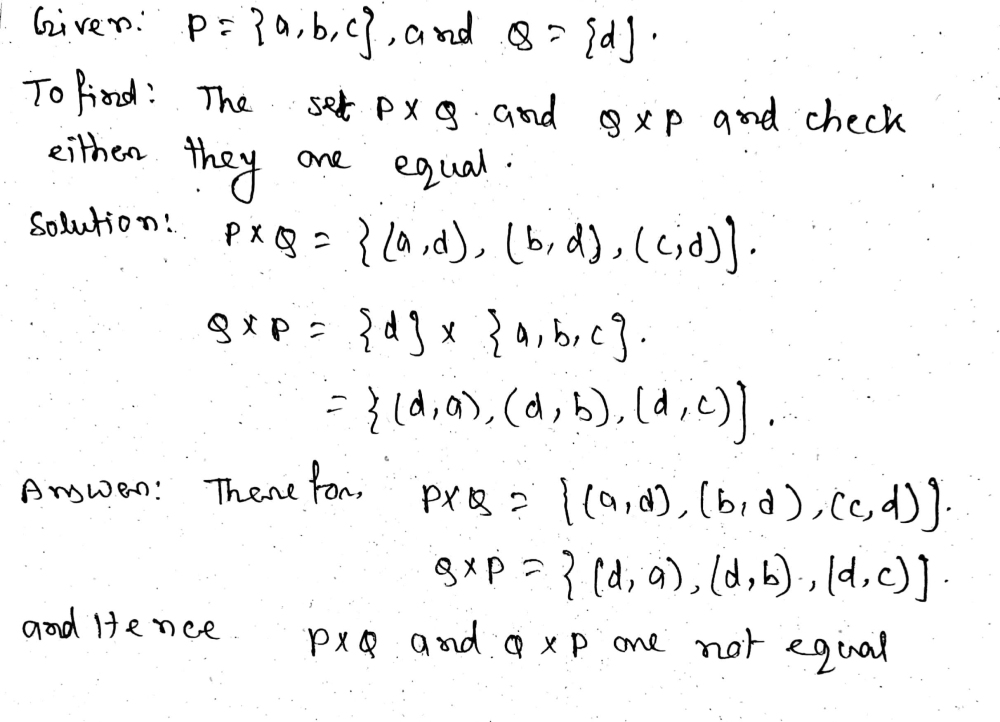 Given: P = {a,b,c}, and Q = {d}.
To find: The set P x Q and Q x P and check
either they are equal.
Solution: P x Q = {(a,d), (b,d), (c,d)}.
Q x P = {d} x {a,b,c}.
= {(d,a), (d,b), (d,c)}.
Answer: Therefor, P x Q = {(a,d), (b,d), (c,d)}.
Q x P = {(d,a), (d,b), (d,c)}.
and Hence P x Q and Q x P are not equal